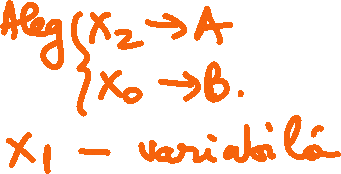 Aleg { x₂ → A
x₀ → B.
x₁ – variabilă